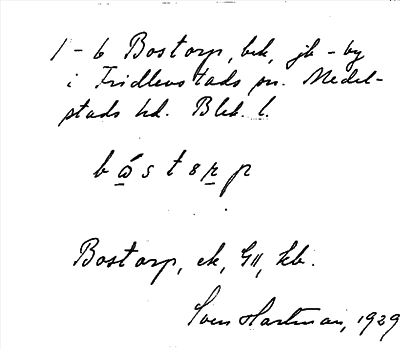 1-6 Bostorp, bek, jb-by
i Fridlevstads sn. Medel-
stads hd. Blek. l.
bωstorp
Bostorp, ek, GII, kb.
Sven Hartman, 1929